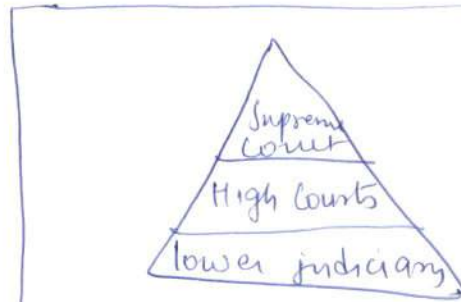 Supreme
Court
High Courts
lower judiciary